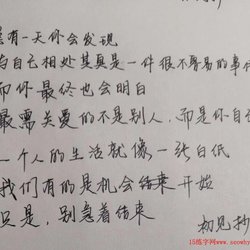 总有一天你会发现
与自己相处其实是一件很不容易的事情
而你最终也会明白
最需关爱的不是别人，而是你自己
一个人的生活就像一张白纸
我们有的是机会结束 开始
只是，别急着结束
初见抄
15练字网www.scowhy